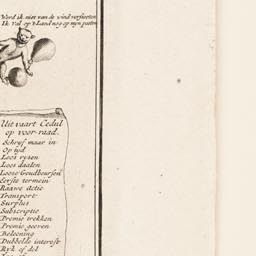 Word ik niet van de wind versmeeten
Ik val op 't Land nog op mijn pooten
Uit vaart Cedul
op voor-raad.
Schryf maar in
Op tyd
Loos rysen
Loos daalen
Looze Geudbeursen
Eerste termein
Raawe Actie
Transport
Surplus
Subscriptie
Premie trekken
Premie geeven
Beleening
Dubbelde interest
Ryk of dol